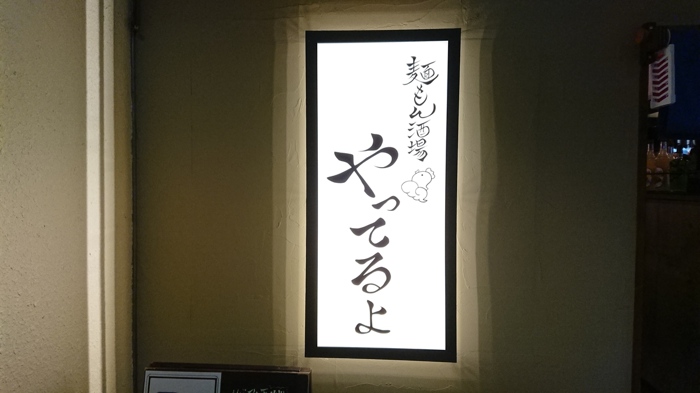 麺もん酒場
やってるよ